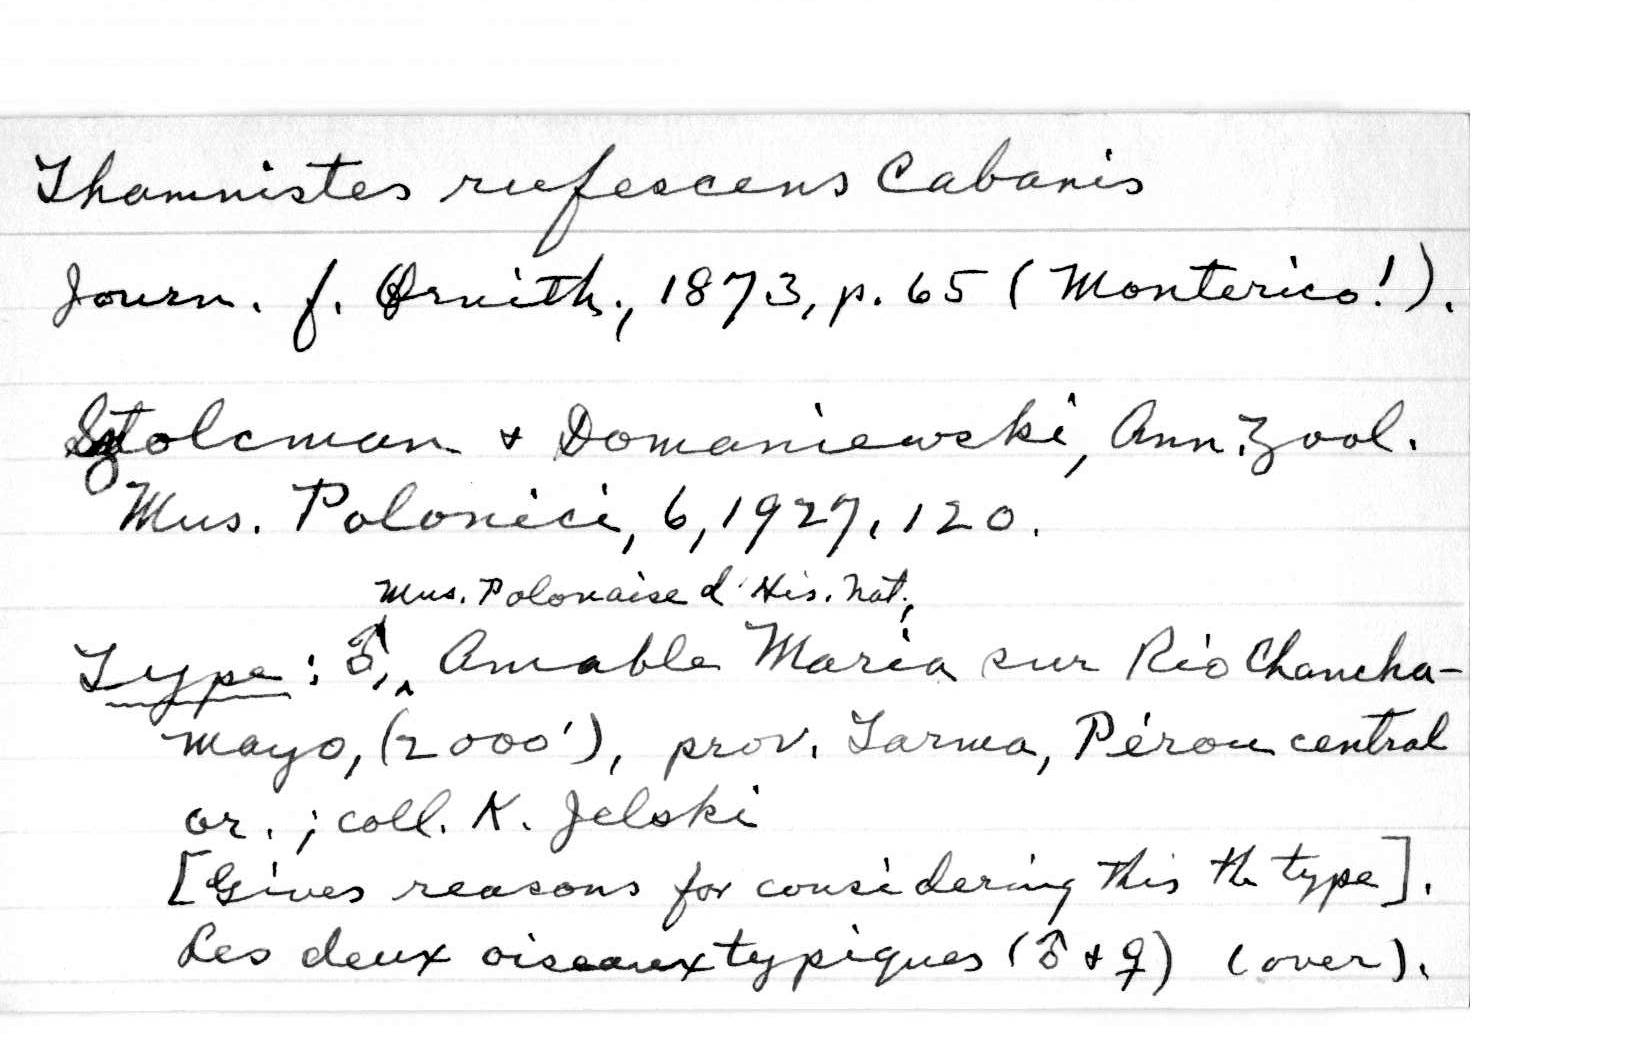 Thamnistes rufescens Cabanis
Journ. f. Ornith., 1873, p. 65 (Monterico!).
Sztolcman & Domaniewski, Ann. Zool.
Mus. Polonici, 6, 1927, 120.
Mus. Polonaise d'His. Nat.,
Type: ♂, ‸ Amable Maria sur Rio Chancha-
mayo, (2000'), prov. Tarma, Pérou central
or.; coll. K. Jelski
[Gives reasons for considering this the type].
Les deux oiseaux typiques (♂ & ♀) (over).